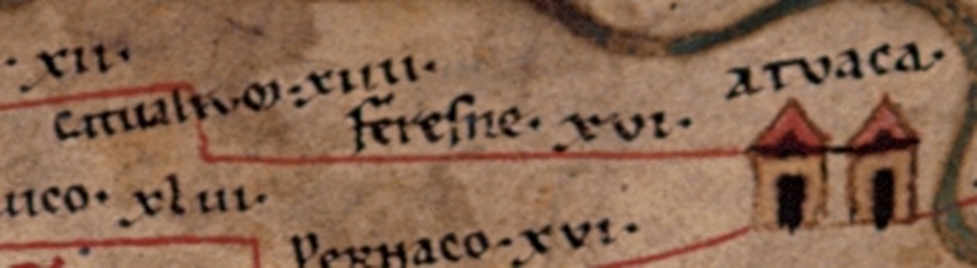 · xII·
Catualium·xIIII·
feresne· xvI·
ATVACA·
uico· xlIII·
Pernaco·xvI·